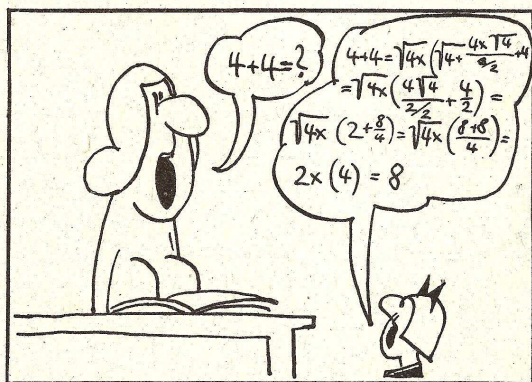 4+4=?
4+4=√4x(√4+ 4x√4/8/2 +4
=√4x(4√4/2/2 + 4/2) =
√4x (2+8/4)=√4x(8+8/4)=
2x (4) = 8